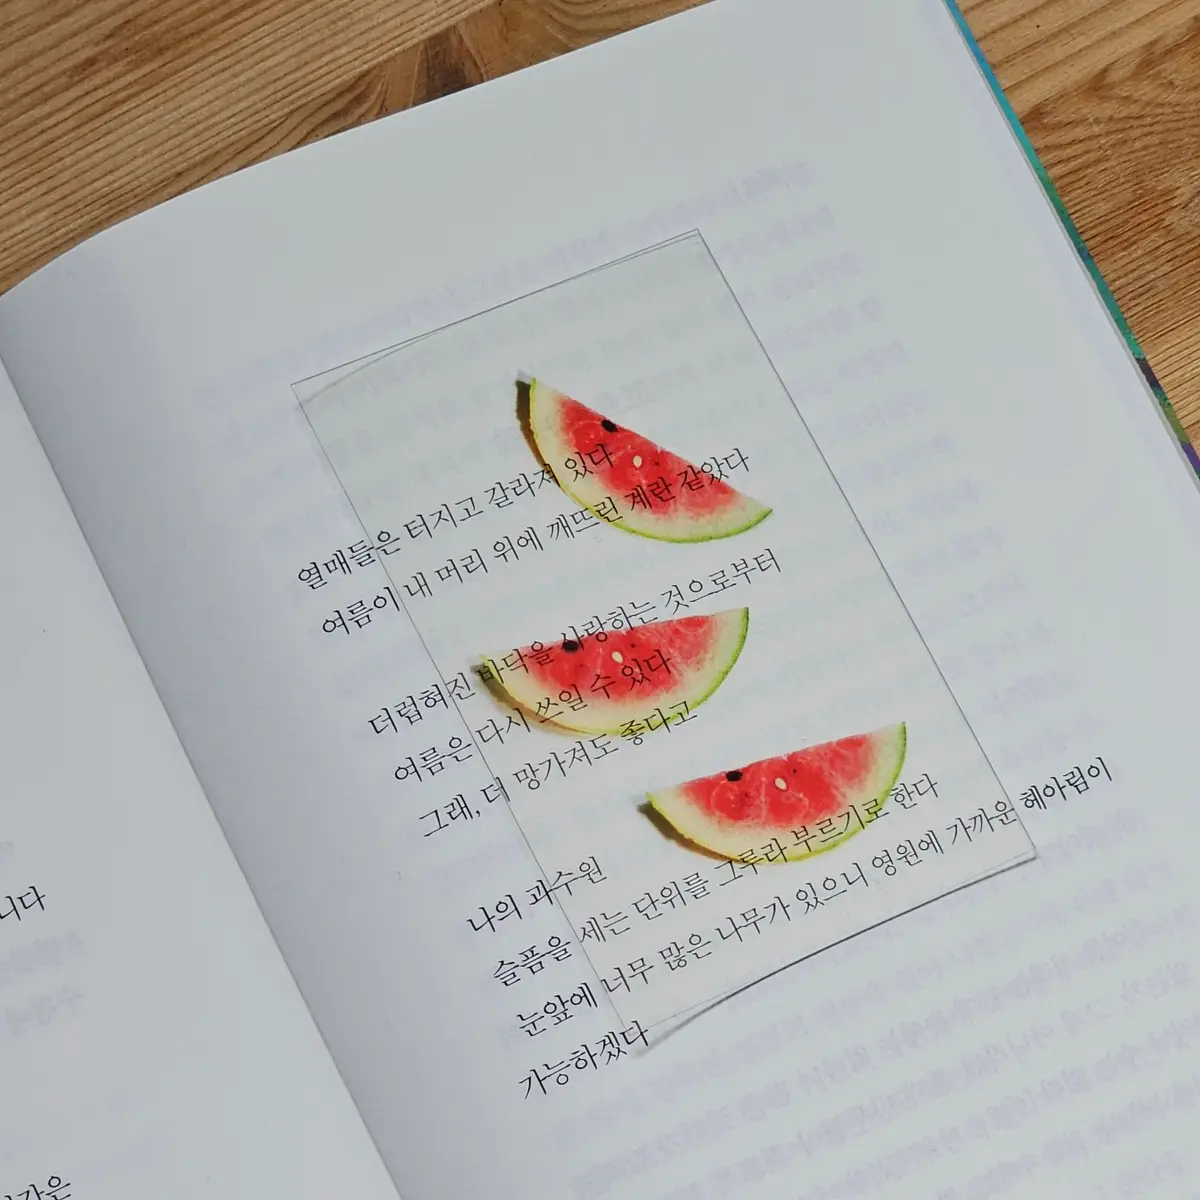 열매들은 터지고 갈라져 있다
여름이 내 머리 위에 깨뜨린 계란 같았다
더럽혀진 바닥을 사랑하는 것으로부터
여름은 다시 쓰일 수 있다
그래, 더 망가져도 좋다고
나의 과수원
슬픔을 세는 단위를 그루라 부르기로 한다
눈앞에 너무 많은 나무가 있으니 영원에 가까운 헤아림이
가능하겠다
니다